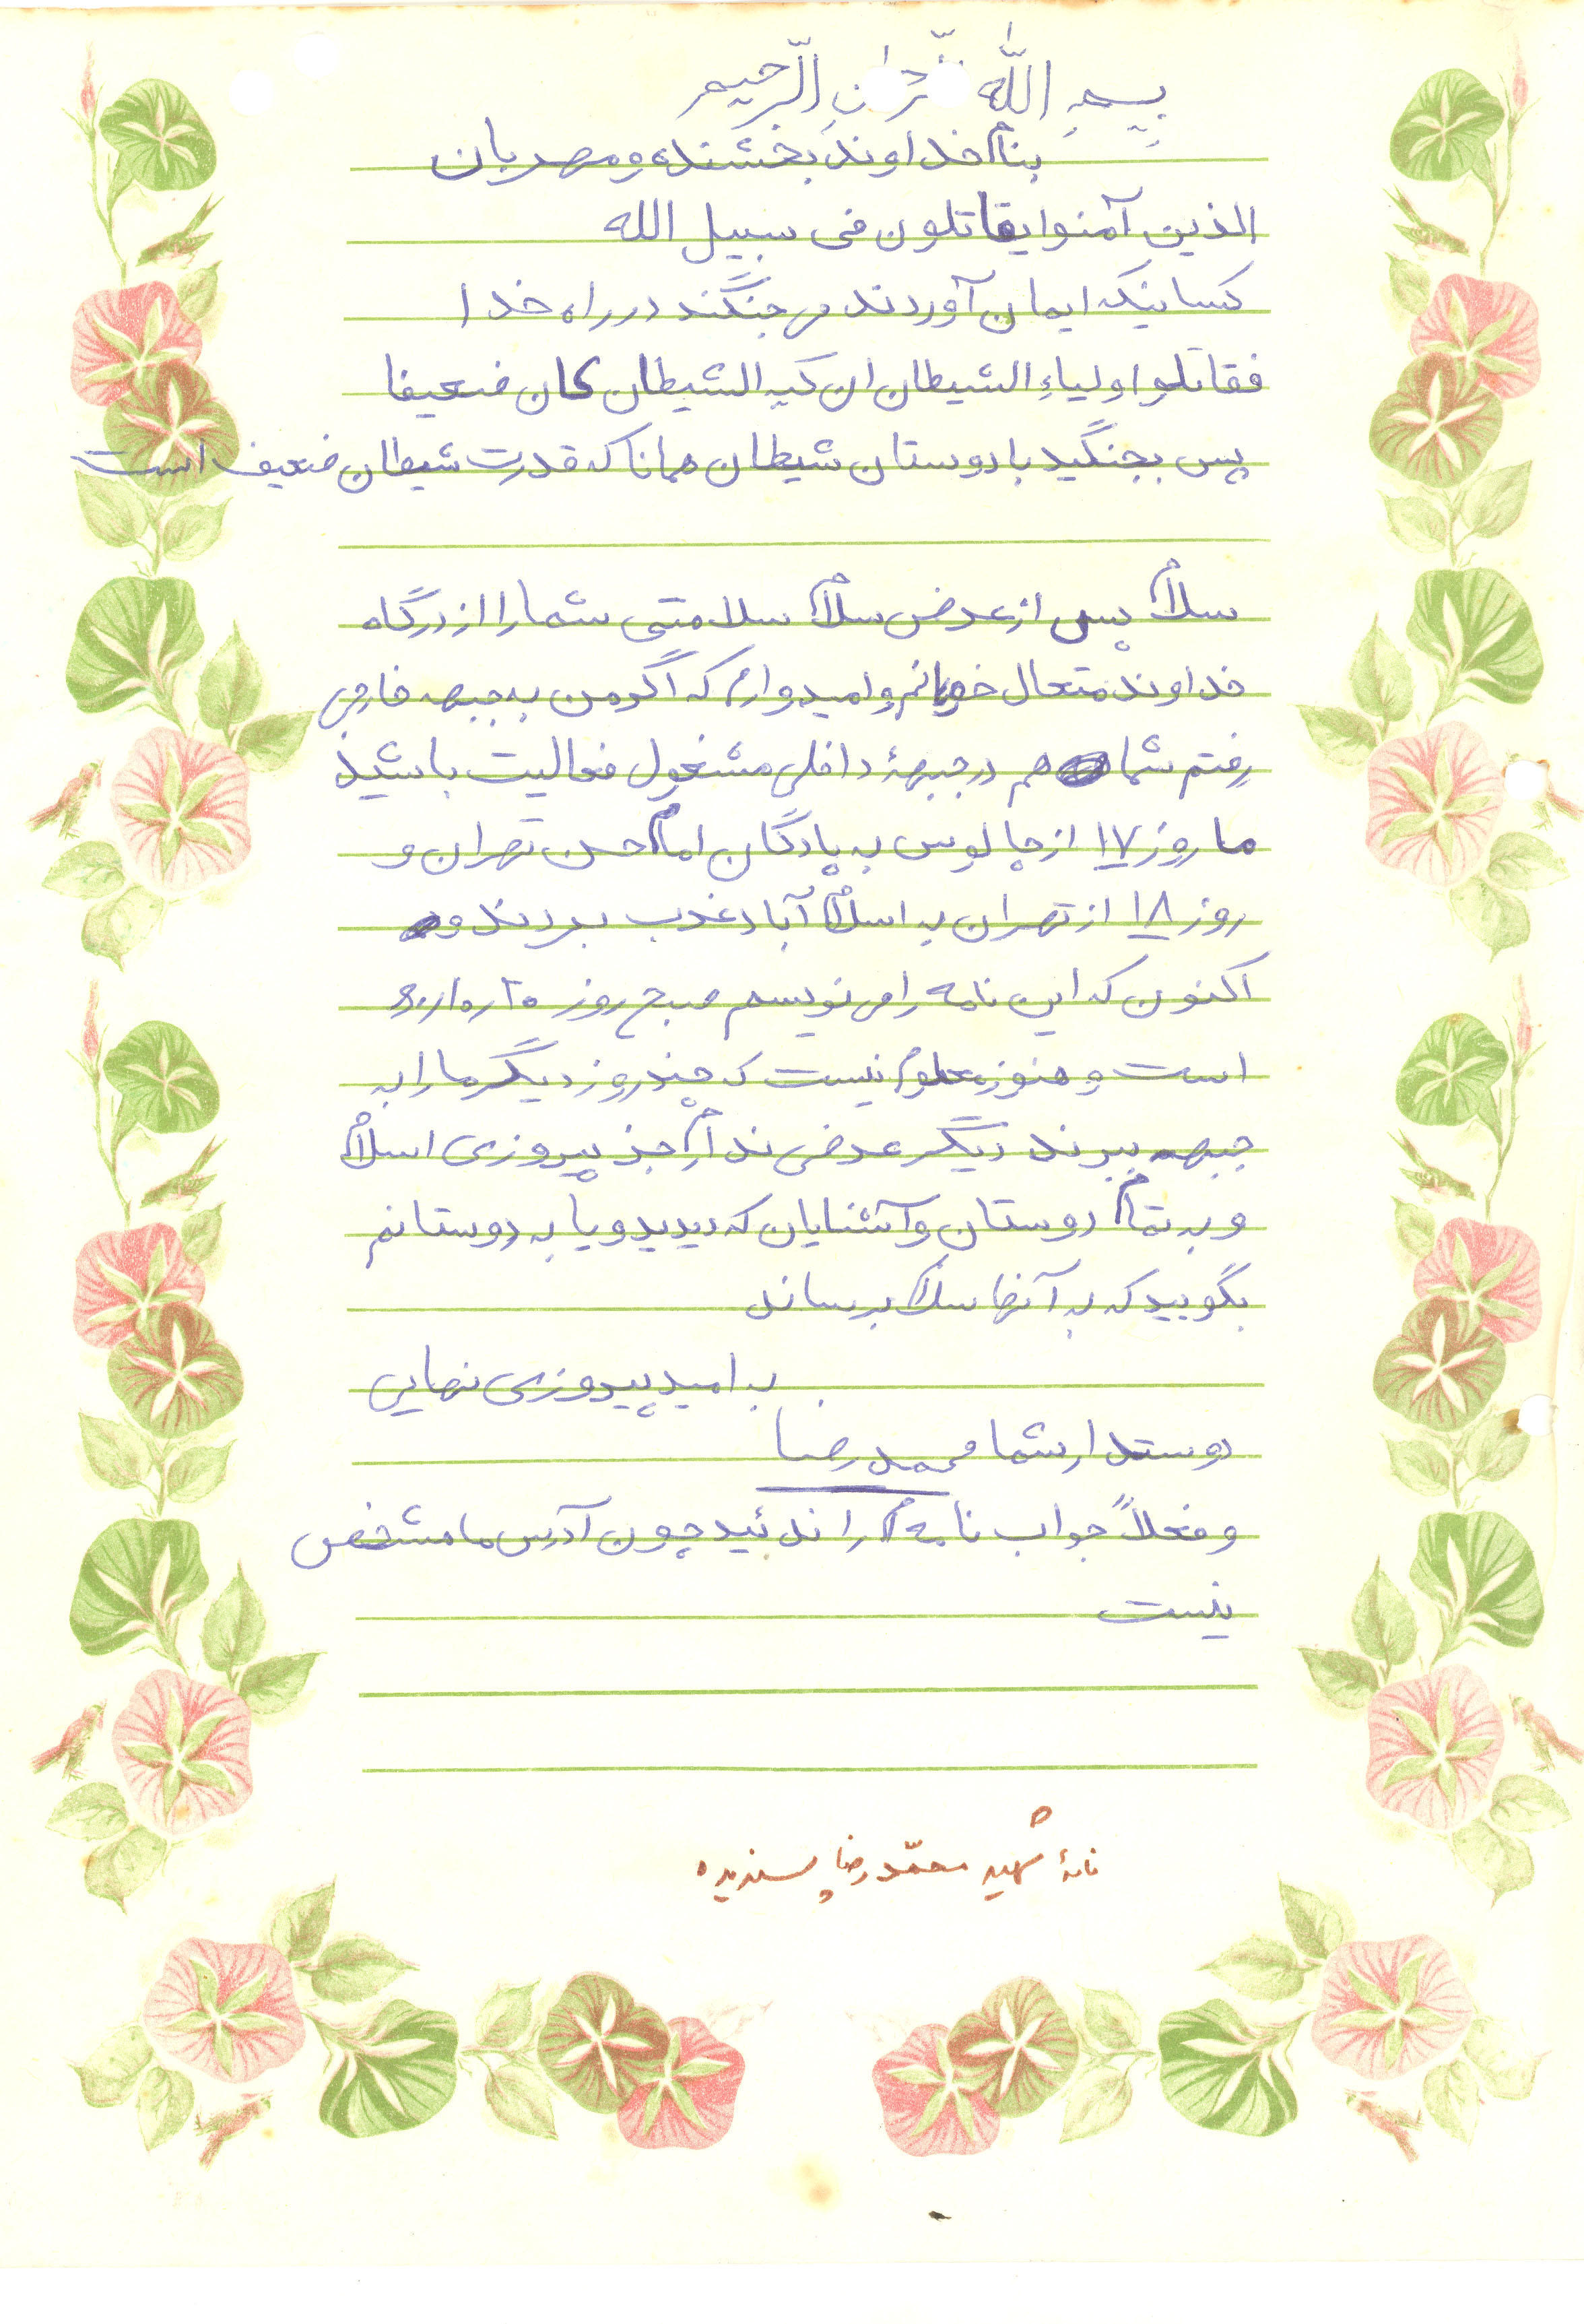 بسم الله الرّحمن الرّحیم
بنام خداوند بخشنده و مهربان
الذین آمنوا یقاتلون فی سبیل الله
کسانیکه ایمان آوردند می جنگند در راه خدا
فقاتلوا اولیاء الشیطان ان کید الشیطان کان ضعیفا
پس بجنگید با دوستان شیطان همانا که قدرت شیطان ضعیف است
سلام پس از عرض سلام سلامتی شما را از درگاه
خداوند متعال خواهانم و امیدوارم که اگر من به جبهه خارجی
رفتم شما هم در جبههٔ داخلی مشغول فعالیت باشید
ما روز ۱۷ از چالوس به پادگان امام حسن تهران و
روز ۱۸ از تهران به اسلام آباد غرب بردند و
اکنون که این نامه را می نویسم صبح روز
است و هنوز معلوم نیست که چند روز دیگر ما را به
جبهه ببرند دیگر عرضی ندارم جز پیروزی اسلام
و به تمام دوستان و آشنایان که دیدید و یا به دوستانم
بگویید که به آنها سلام برساند
به امید پیروزی نهایی
دوستدار شما محمد رضا
و فعلاً جواب نامه ام را ندئید چون آدرس ما مشخص
نیست
نامهٔ شهید محمّد رضا پسندیده